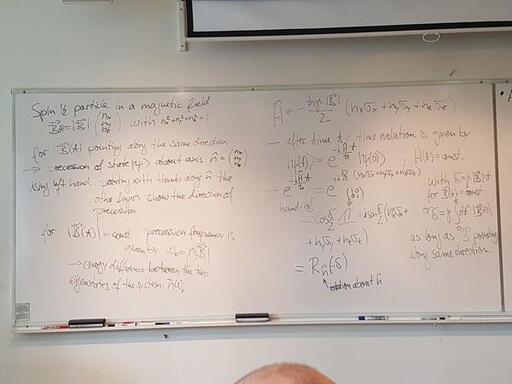 Spin 1/2 particle in a magnetic field
B(t) = |B| (nx ny nz) with nx²+ny²+nz²=1
for B(t) pointing along the same direction
→ precession of state |ψ⟩ about axis n = (nx ny nz)
using left hand pointing with thumb along n the
fingers show the direction of
precession
for |B(t)| = const precession frequency is
given by ω₀ = γ|B|
→ energy difference between the two
eigenstates of the system: ħω₀
Ĥ = -ħγ|B|/2 (nxσx + nyσy + nzσz)
— after time t, time evolution is given by
|ψ(t)⟩ = e |ψ(0)⟩ , Ĥ(t) = const
with δ = γ|B|t
for B(t) = const
= cos δ/2 + i sin δ/2 (nxσx
+ nyσy + nzσz)
as long as B pointing
along same direction.
= Rn(-δ)
rotation about n